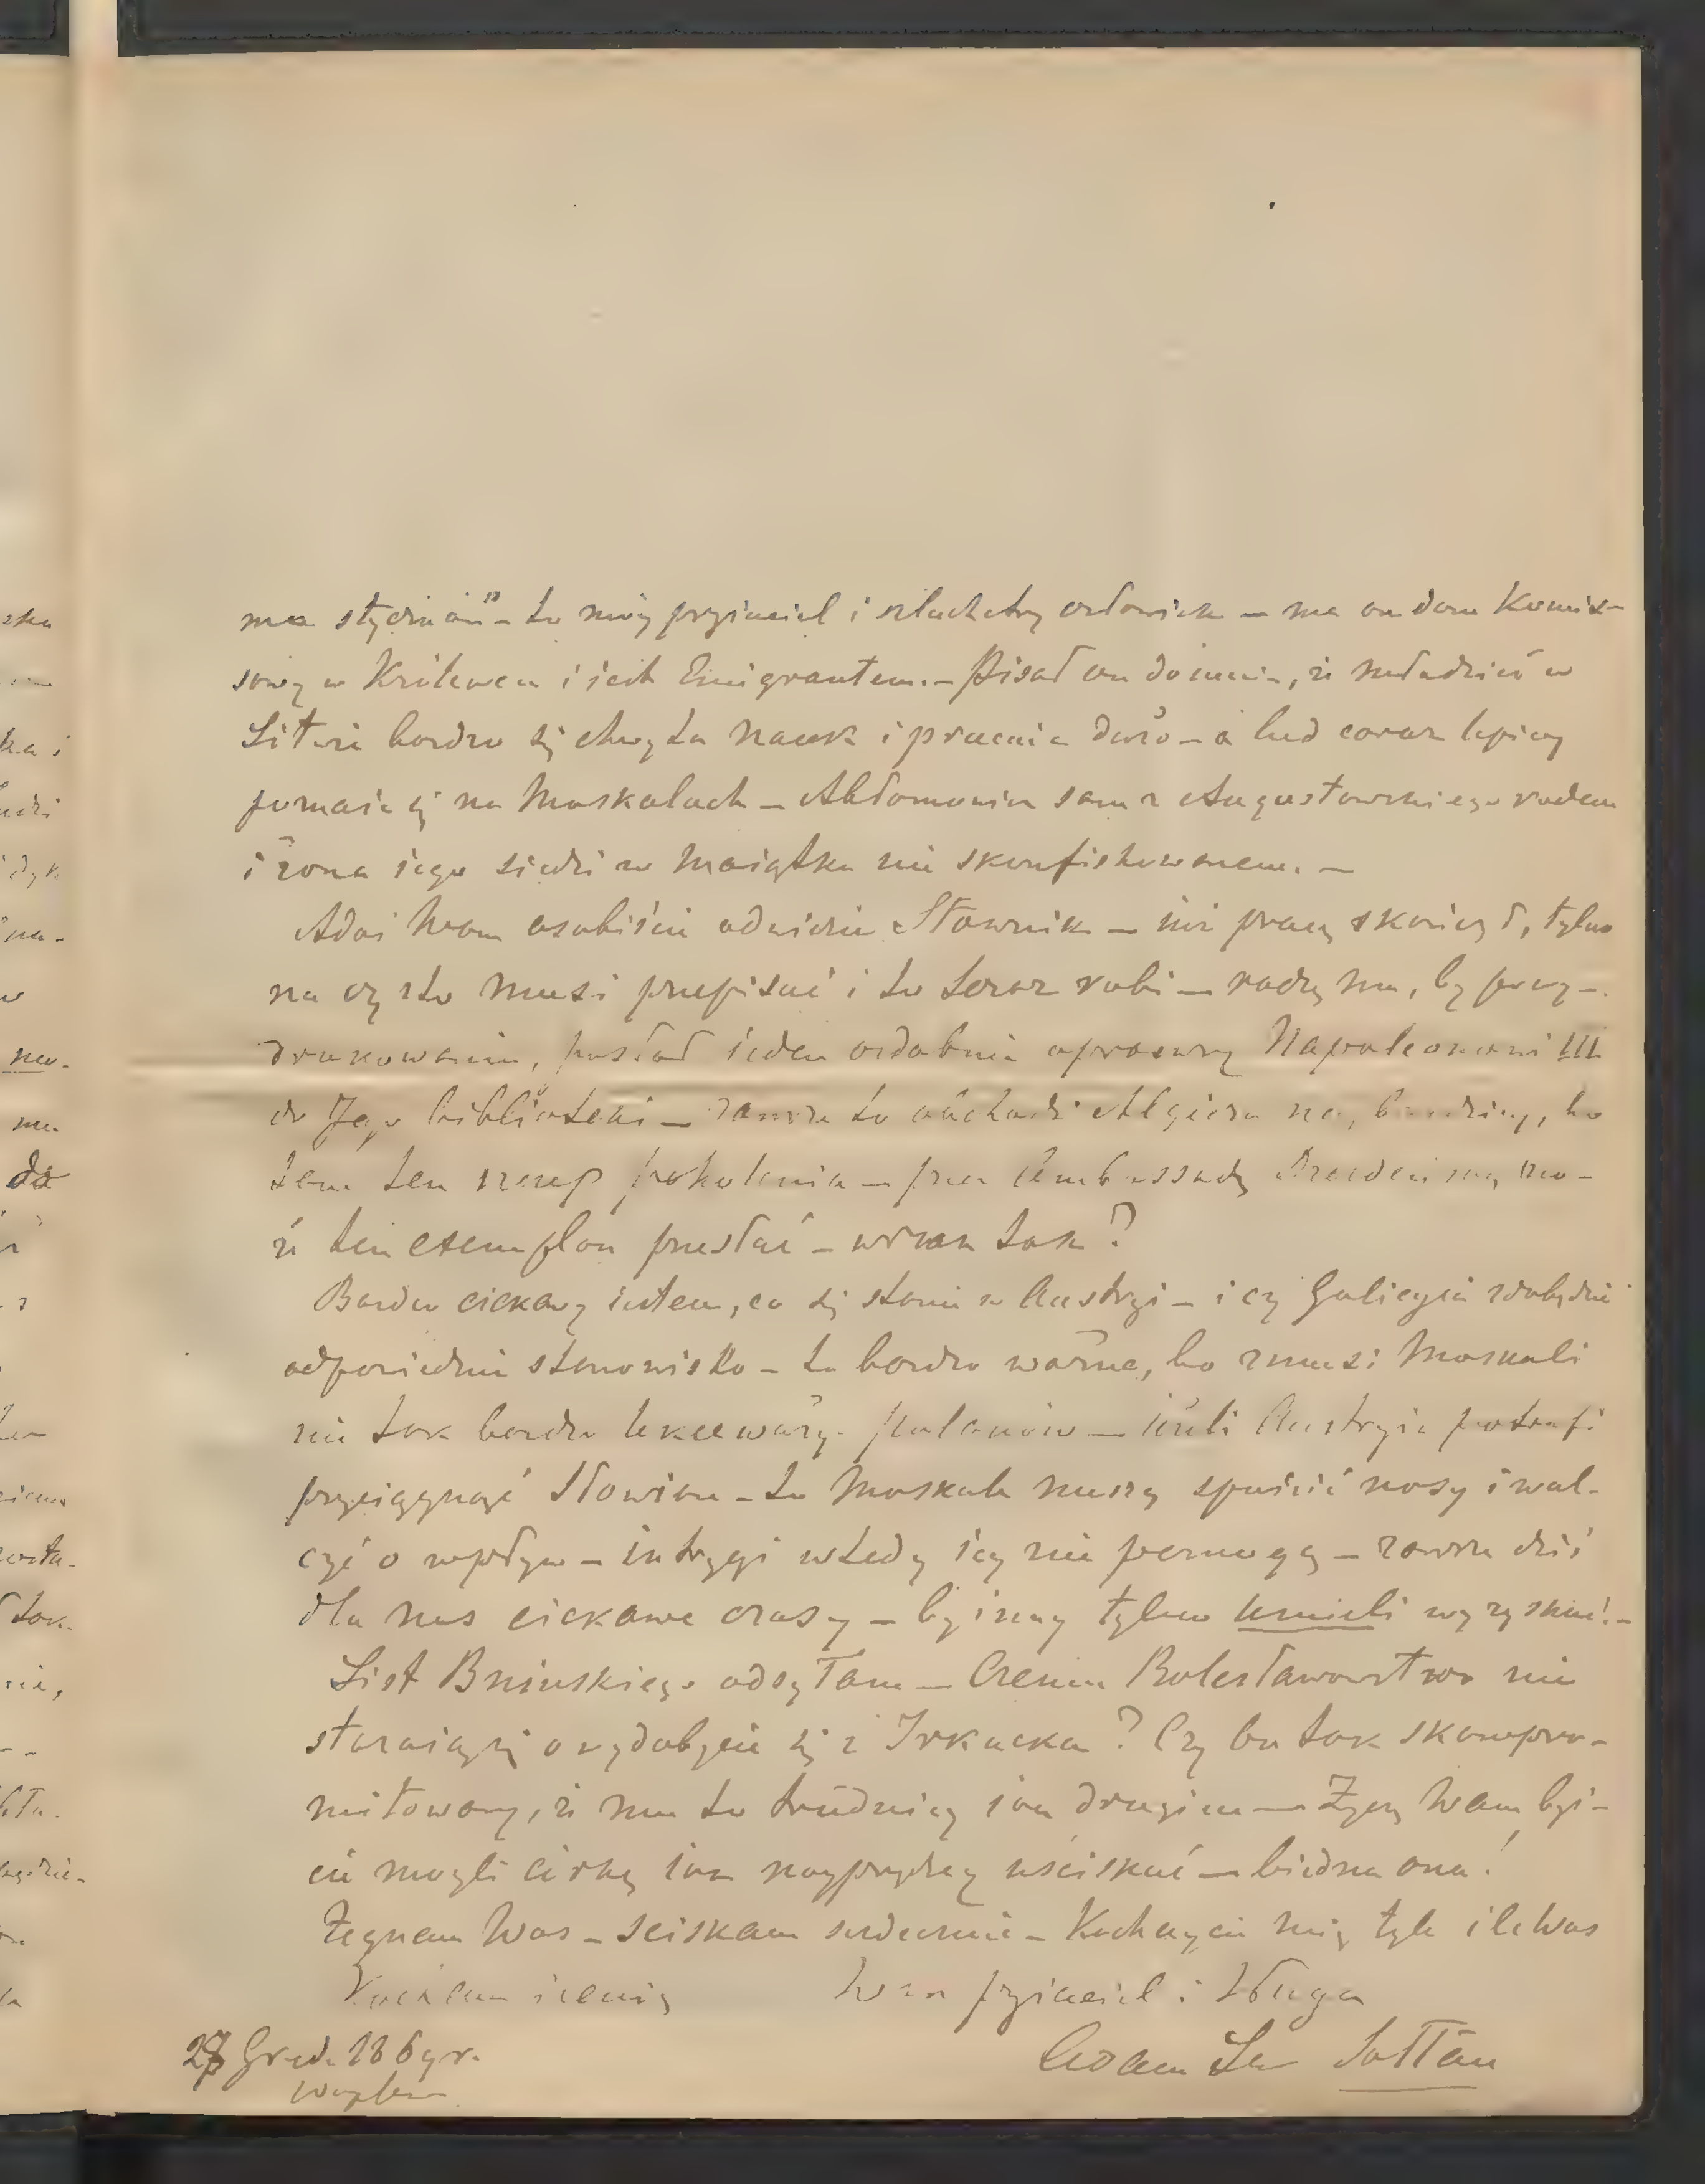 ma styczność" – to mój przyiaciel i szlachetny człowiek – ma on dom Komis-
sowy w Królewcu i iest Emigrantem. – Pisał on do mnie, iż młodzież w
Litwie bardzo się chwyta nauk i pracuie dużo – a lud coraz lepiey
poznaie się na Moskalach – sam z Augustowskiego rodem
i żona iego siedzi w maiątku nie skonfiskowanem. –
Adaś Wam osobiście odwiezie Słownik – iuż pracę skończył, tylko
na czysto musi przepisać i to teraz robi – radzę mu, by po wy-
drukowaniu, posłał ieden ozdobnie oprawny Napoleonowi III
do Jego biblioteki – zawsze to obchodzi Algiera bo
tam ten szczep pokolenia – przez Ambassadę Drezdeńską mo-
że ten exemplarz przesłać – wszak tak?
Bardzo ciekawy iestem, co się stanie w Austryi – i czy Galicyia zdobędzie
odpowiednie stanowisko – to bardzo ważne, bo zmusi Moskali
nie tak bardzo lekceważyć Polaków – ieżeli Austryia potrafi
przyciągnąć Słowian – to Moskale muszą spuścić nosy i wal-
czyć o wpływ – intrygi wtedy iey nie pomogą – zawsze dziś
dla nas ciekawe czasy – byśmy tylko umieli wyzyskać! –
List Bnińskiego odsyłam – Czemu Bolesławowstwo nie
staraią się o wydobycie się z Irkucka? Czy on tak skompro-
mitowany, iż mu to trudniey iak drugim – Życzę Wam byś-
cie mogli Córkę iak nayprędzey uściskać – biedna ona!
Żegnam Was – ściskam serdecznie – Kochaycie mię tyle ile Was
Kocham i cenię Wasz przyiaciel i Sługa
27 Grud. 1869 r. Adam Lew Sołtan